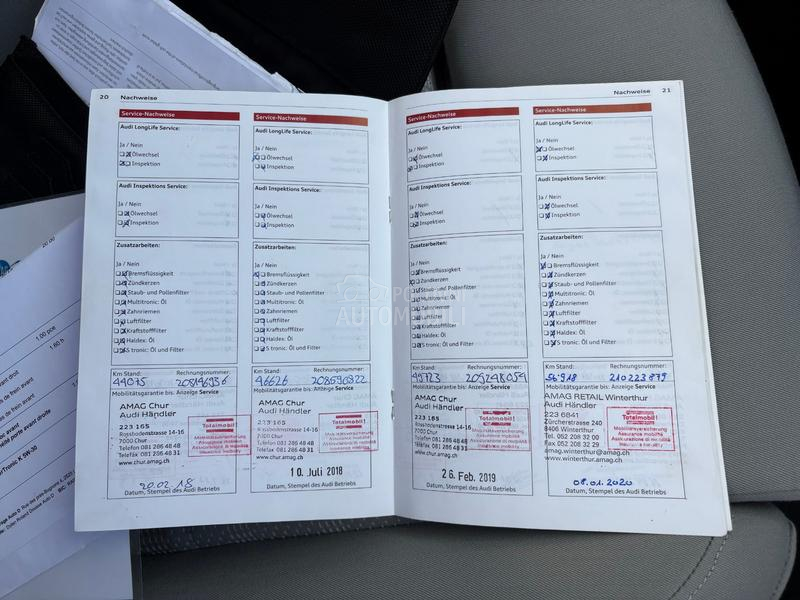 20 Nachweise
Service-Nachweise
Audi LongLife Service:
Ja / Nein
Ölwechsel
Inspektion
Audi Inspektions Service:
Ja / Nein
Ölwechsel
Inspektion
Zusatzarbeiten:
Ja / Nein
Bremsflüssigkeit
Zündkerzen
Staub- und Pollenfilter
Multitronic: Öl
Zahnriemen
Luftfilter
Kraftstofffilter
Haldex: Öl
S tronic: Öl und Filter
Km Stand: Rechnungsnummer:
44075 208146936
Mobilitätsgarantie bis: Anzeige Service
AMAG Chur
Audi Händler
223 165
Rossbodenstrasse 14-16
7000 Chur
Telefon 081 286 48 48
Telefax 081 286 48 31
www.chur.amag.ch
Totalmobil!
Mobilitätsversicherung
Assurance mobilité
20.02.18
Datum, Stempel des Audi Betriebs
Service-Nachweise
Audi LongLife Service:
Ja / Nein
Ölwechsel
Inspektion
Audi Inspektions Service:
Ja / Nein
Ölwechsel
Inspektion
Zusatzarbeiten:
Ja / Nein
Bremsflüssigkeit
Zündkerzen
Staub- und Pollenfilter
Multitronic: Öl
Zahnriemen
Luftfilter
Kraftstofffilter
Haldex: Öl
S tronic: Öl und Filter
Km Stand: Rechnungsnummer:
46626 208690822
Mobilitätsgarantie bis: Anzeige Service
AMAG Chur
Audi Händler
223 165
Rossbodenstrasse 14-16
7000 Chur
Telefon 081 286 48 48
Telefax 081 286 48 31
www.chur.amag.ch
Totalmobil!
Mobilitätsversicherung
Assurance mobilité
10. Juli 2018
Datum, Stempel des Audi Betriebs
Nachweise 21
Service-Nachweise
Audi LongLife Service:
Ja / Nein
Ölwechsel
Inspektion
Audi Inspektions Service:
Ja / Nein
Ölwechsel
Inspektion
Zusatzarbeiten:
Ja / Nein
Bremsflüssigkeit
Zündkerzen
Staub- und Pollenfilter
Multitronic: Öl
Zahnriemen
Luftfilter
Kraftstofffilter
Haldex: Öl
S tronic: Öl und Filter
Km Stand: Rechnungsnummer:
49723 209248054
Mobilitätsgarantie bis: Anzeige Service
AMAG Chur
Audi Händler
223 165
Rossbodenstrasse 14-16
7000 Chur
Telefon 081 286 48 48
Telefax 081 286 48 31
www.chur.amag.ch
Totalmobil!
Mobilitätsversicherung
Assurance mobilité
26. Feb. 2019
Datum, Stempel des Audi Betriebs
Service-Nachweise
Audi LongLife Service:
Ja / Nein
Ölwechsel
Inspektion
Audi Inspektions Service:
Ja / Nein
Ölwechsel
Inspektion
Zusatzarbeiten:
Ja / Nein
Bremsflüssigkeit
Zündkerzen
Staub- und Pollenfilter
Multitronic: Öl
Zahnriemen
Luftfilter
Kraftstofffilter
Haldex: Öl
S tronic: Öl und Filter
Km Stand: Rechnungsnummer:
56918 210223879
Mobilitätsgarantie bis: Anzeige Service
AMAG RETAIL Winterthur
Audi Händler
223 6841
Zürcherstrasse 240
8406 Winterthur
Tel. 052 208 32 00
Fax 052 208 32 20
amag.winterthur@amag.ch
www.winterthur.amag.ch
Totalmobil!
Mobilitätsversicherung
Assurance mobilité
Assicurazione di mobilità
08.01.2020
Datum, Stempel des Audi Betriebs
AUTOMOBILI
1.00 pce
1.60 h